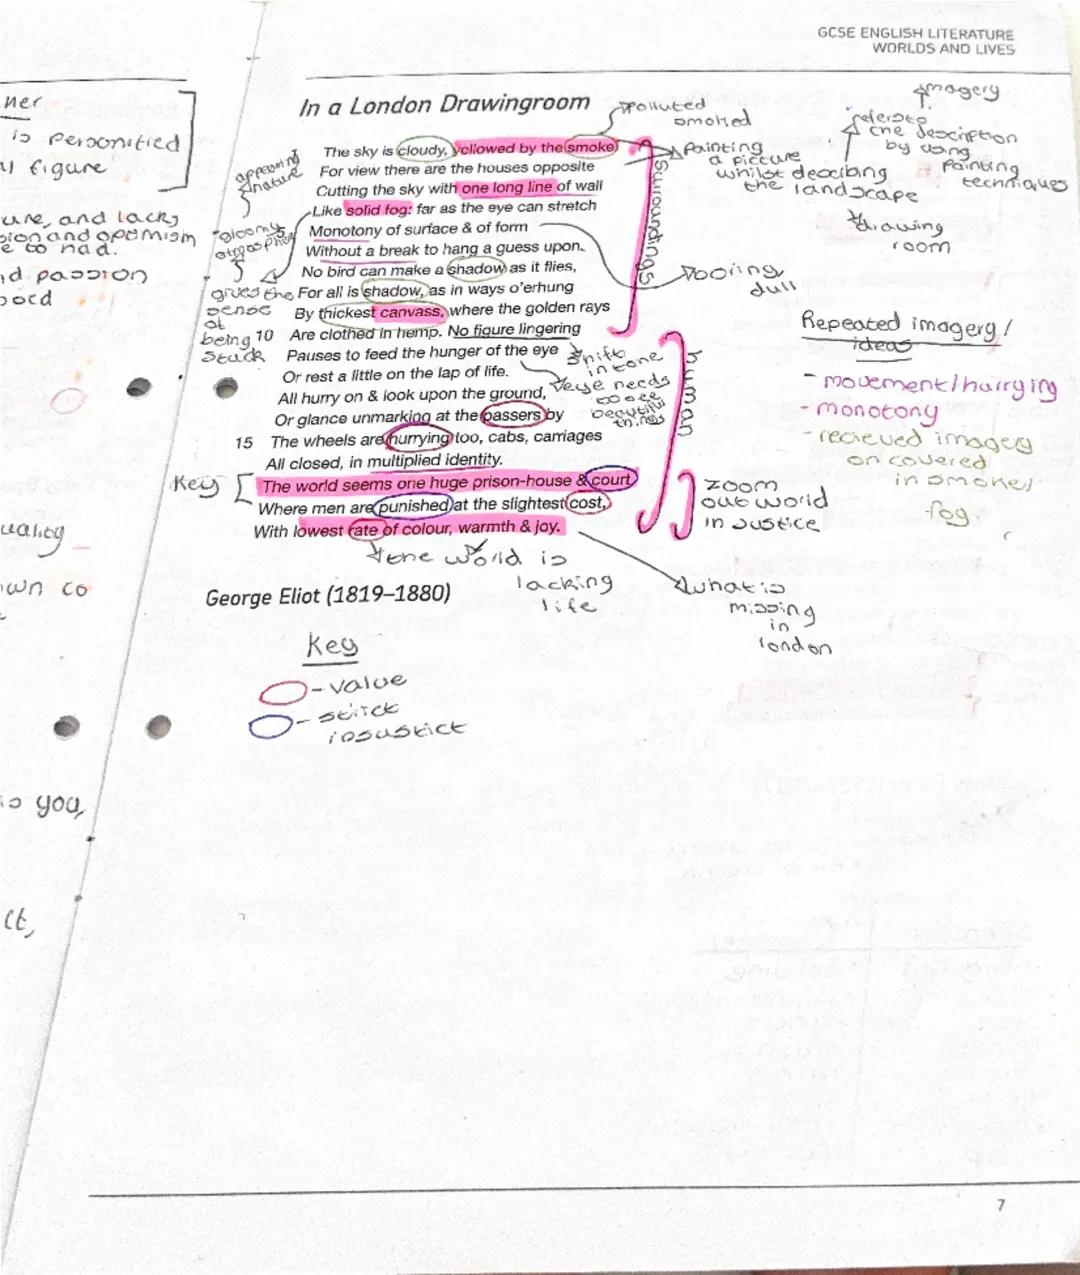 GCSE ENGLISH LITERATURE
WORLDS AND LIVES
ner
is personitied
figure
ure, and lacks
sion and optomism
e to had.
nd passion
oocd
uality
own co
is you,
ct,
In a London Drawingroom
The sky is cloudy, yellowed by the smoke
For view there are the houses opposite
Cutting the sky with one long line of wall
Like solid fog: far as the eye can stretch
Monotony of surface & of form
Without a break to hang a guess upon.
No bird can make a shadow as it flies,
For all is shadow, as in ways o'erhung
By thickest canvass, where the golden rays
10 Are clothed in hemp. No figure lingering
Pauses to feed the hunger of the eye
Or rest a little on the lap of life.
All hurry on & look upon the ground,
Or glance unmarking at the passers by
15 The wheels are hurrying too, cabs, carriages
All closed, in multiplied identity.
The world seems one huge prison-house & court
Where men are punished at the slightest cost,
With lowest rate of colour, warmth & joy.
George Eliot (1819–1880)
appearing
nature
gloomy
atmosphere
gives the
sense
of
being
stuck
Key
polluted
smoked
Painting
a picture
whilst describing
the landscape
imagery
refers to
the description
by using
painting
techniques
drawing
room
Surroundings
booing
dull
shift
in tone
eye needs
to see
beautiful
things
human
zoom
out world
injustice
the world is
lacking
life
what is
missing
in
london
Repeated imagery/
ideas
- movement/hurrying
- monotony
- recieved imagery
on covered
in smoke/
fog.
Key
- value
- strict
injustict
7